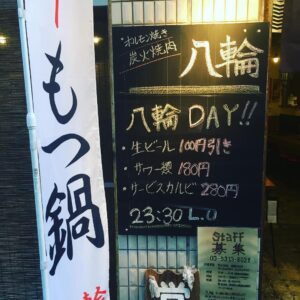 もつ鍋
ホルモン焼き
炭火焼肉
八輪
八輪 DAY!!
・生ビール 100円引き
・サワー類 180円
・サービスカルビ 280円
23:30 L.O
Staff
募集